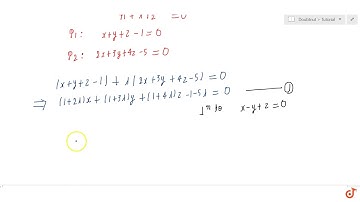 Doubtnut - Tutorial
= 0
P1: x+y+z-1=0
P2: 2x+3y+4z-5=0
(x+y+z-1) + λ(2x+3y+4z-5) = 0
⇒ (1+2λ)x + (1+3λ)y + (1+4λ)z -1-5λ = 0 ——— ①
⊥r to x-y+z=0